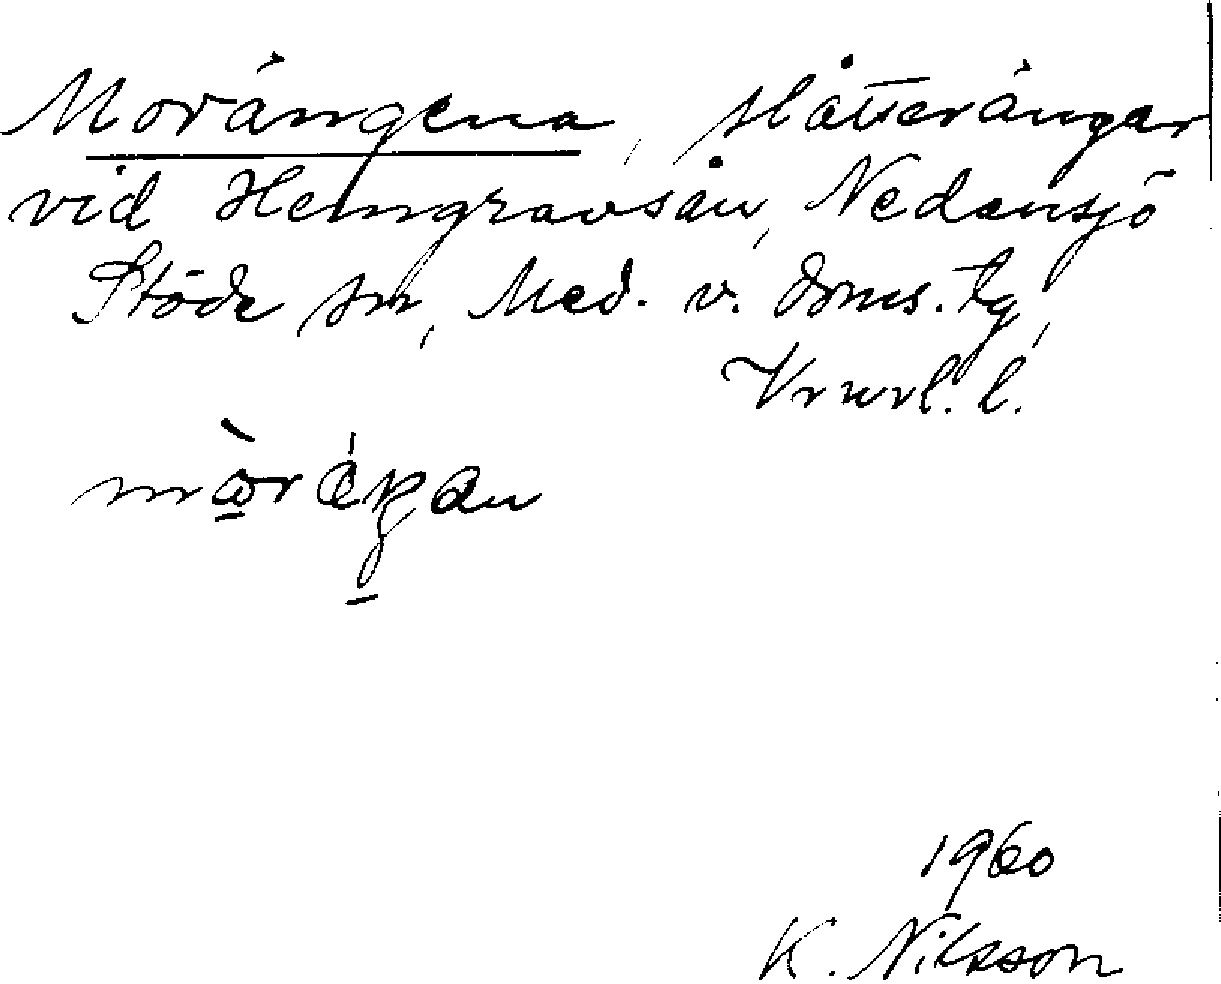 Morängena, slåtterängar
vid Hemgravsån, Nedansjö
Stöde sn, Med. v. doms. tg,
Vrnrl. l.
1960
K. Nilsson